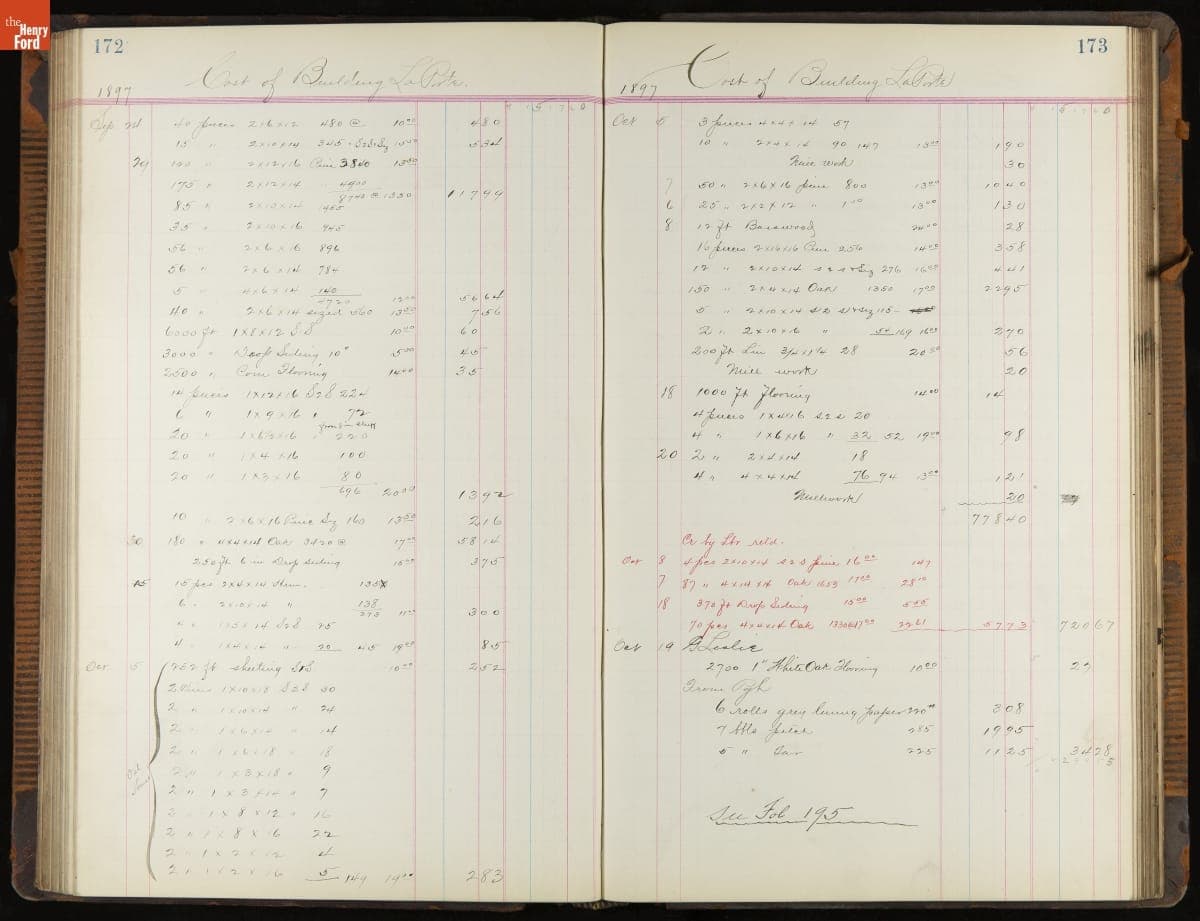 the Henry Ford
172
Cost of Building LaPorte.
1897
Sep 24 40 pieces 2x6x12 480 @ 10 00 4 80
15 " 2x10x14 345 S2S+Sz 15 00 5 34
29 120 " 2x12x16 Pine 3840 13 50
175 " 2x12x14 " 4900
8740 @ 13 50 117 99
85 " 2x10x14
35 " 2x10x16 945
56 " 2x6x16 896
56 " 2x6x14 784
5 " 4x6x14 140
4720 12 00 56 64
40 " 2x6x14 sized 560 13 50 7 56
6000 ft 1x8x12 S1S 10 00 60
3000 " Drop Siding 10" 15 00 45
2500 " Com Flooring 14 00 35
14 pieces 1x12x16 S2S 224
6 " 1x9x16 " 72
20 " 1x6½x16 " 220
20 " 1x4x16 100
20 " 1x3x16 80
696 20 00 13 92
10 " 2x6x16 Pine Sz 160 13 50 2 16
30 180 " 4x4x14 Oak 3420 @ 17 00 58 14
250 ft 6 in Drop siding 15 00 3 75
15 pcs 2x4x14 Hem. 135
6 " 2x10x14 " 138
273 11 00 3 00
1x5x14 S2S 25
4 " 1x4x14 " 20 45 19 00 85
Oct 5 252 ft sheeting S1S 10 00 2 52
2 Pieces 1x10x18 S2S 30
2 " 1x10x14 " 24
2 " 1x6x14 " 14
2 " 1x6x18 " 18
2 " 1x3x18 " 9
2 " 1x3x14 " 7
2 " 1x8x12 " 16
2 " 1x8x16 22
2 " 1x2x12 4
2 " 1x2x16 5 149 19 00 2 83
173
Cost of Building LaPorte
1897
Oct 5 3 pieces 4x4x14 57
10 " 2x4x14 90 147 13 00 1 90
Mill work 30
7 50 " 2x6x16 pine 800 13 00 10 40
6 25 " 2x2x12 " 1 00 13 00 1 30
8 12 ft Basswood 24 00 28
16 pieces 2x6x16 Pine 256 14 00 3 58
12 " 2x10x14 S2S+Sz 276 16 00 4 41
150 " 2x4x14 Oak 1350 17 00 22 95
5 " 2x10x14 115
2 " 2x10x16 " 54 169 16 00 2 70
200 ft Lin 3/4x1¼ 28 20 00 56
Mill work 20
18 1000 ft Flooring 14 00 14
4 pieces 1x4x16 S2S 20
4 " 1x6x16 " 32 52 19 00 98
20 2 " 2x4x14 18
4 " 4x4x14 76 94 13 00 1 21
Millwork 20
778 40
Cr by Lbr retd.
Oct 8 4 pcs 2x10x14 S2S pine 16 00 1 47
7 87 " 4x4x14 Oak 1653 17 00 28 10
18 370 ft Drop Siding 15 00 5 55
70 pcs 4x4x14 Oak 1330 @ 17 00 22 61 57 73 720 67
Oct 19 G Leslie
2700 1" White Oak Flooring 10 00 27
From Pgh
6 rolls grey lining paper 220# 3 08
7 bbls pitch 285 19 95
5 " Tar 225 11 25 34 28
See Fol 195